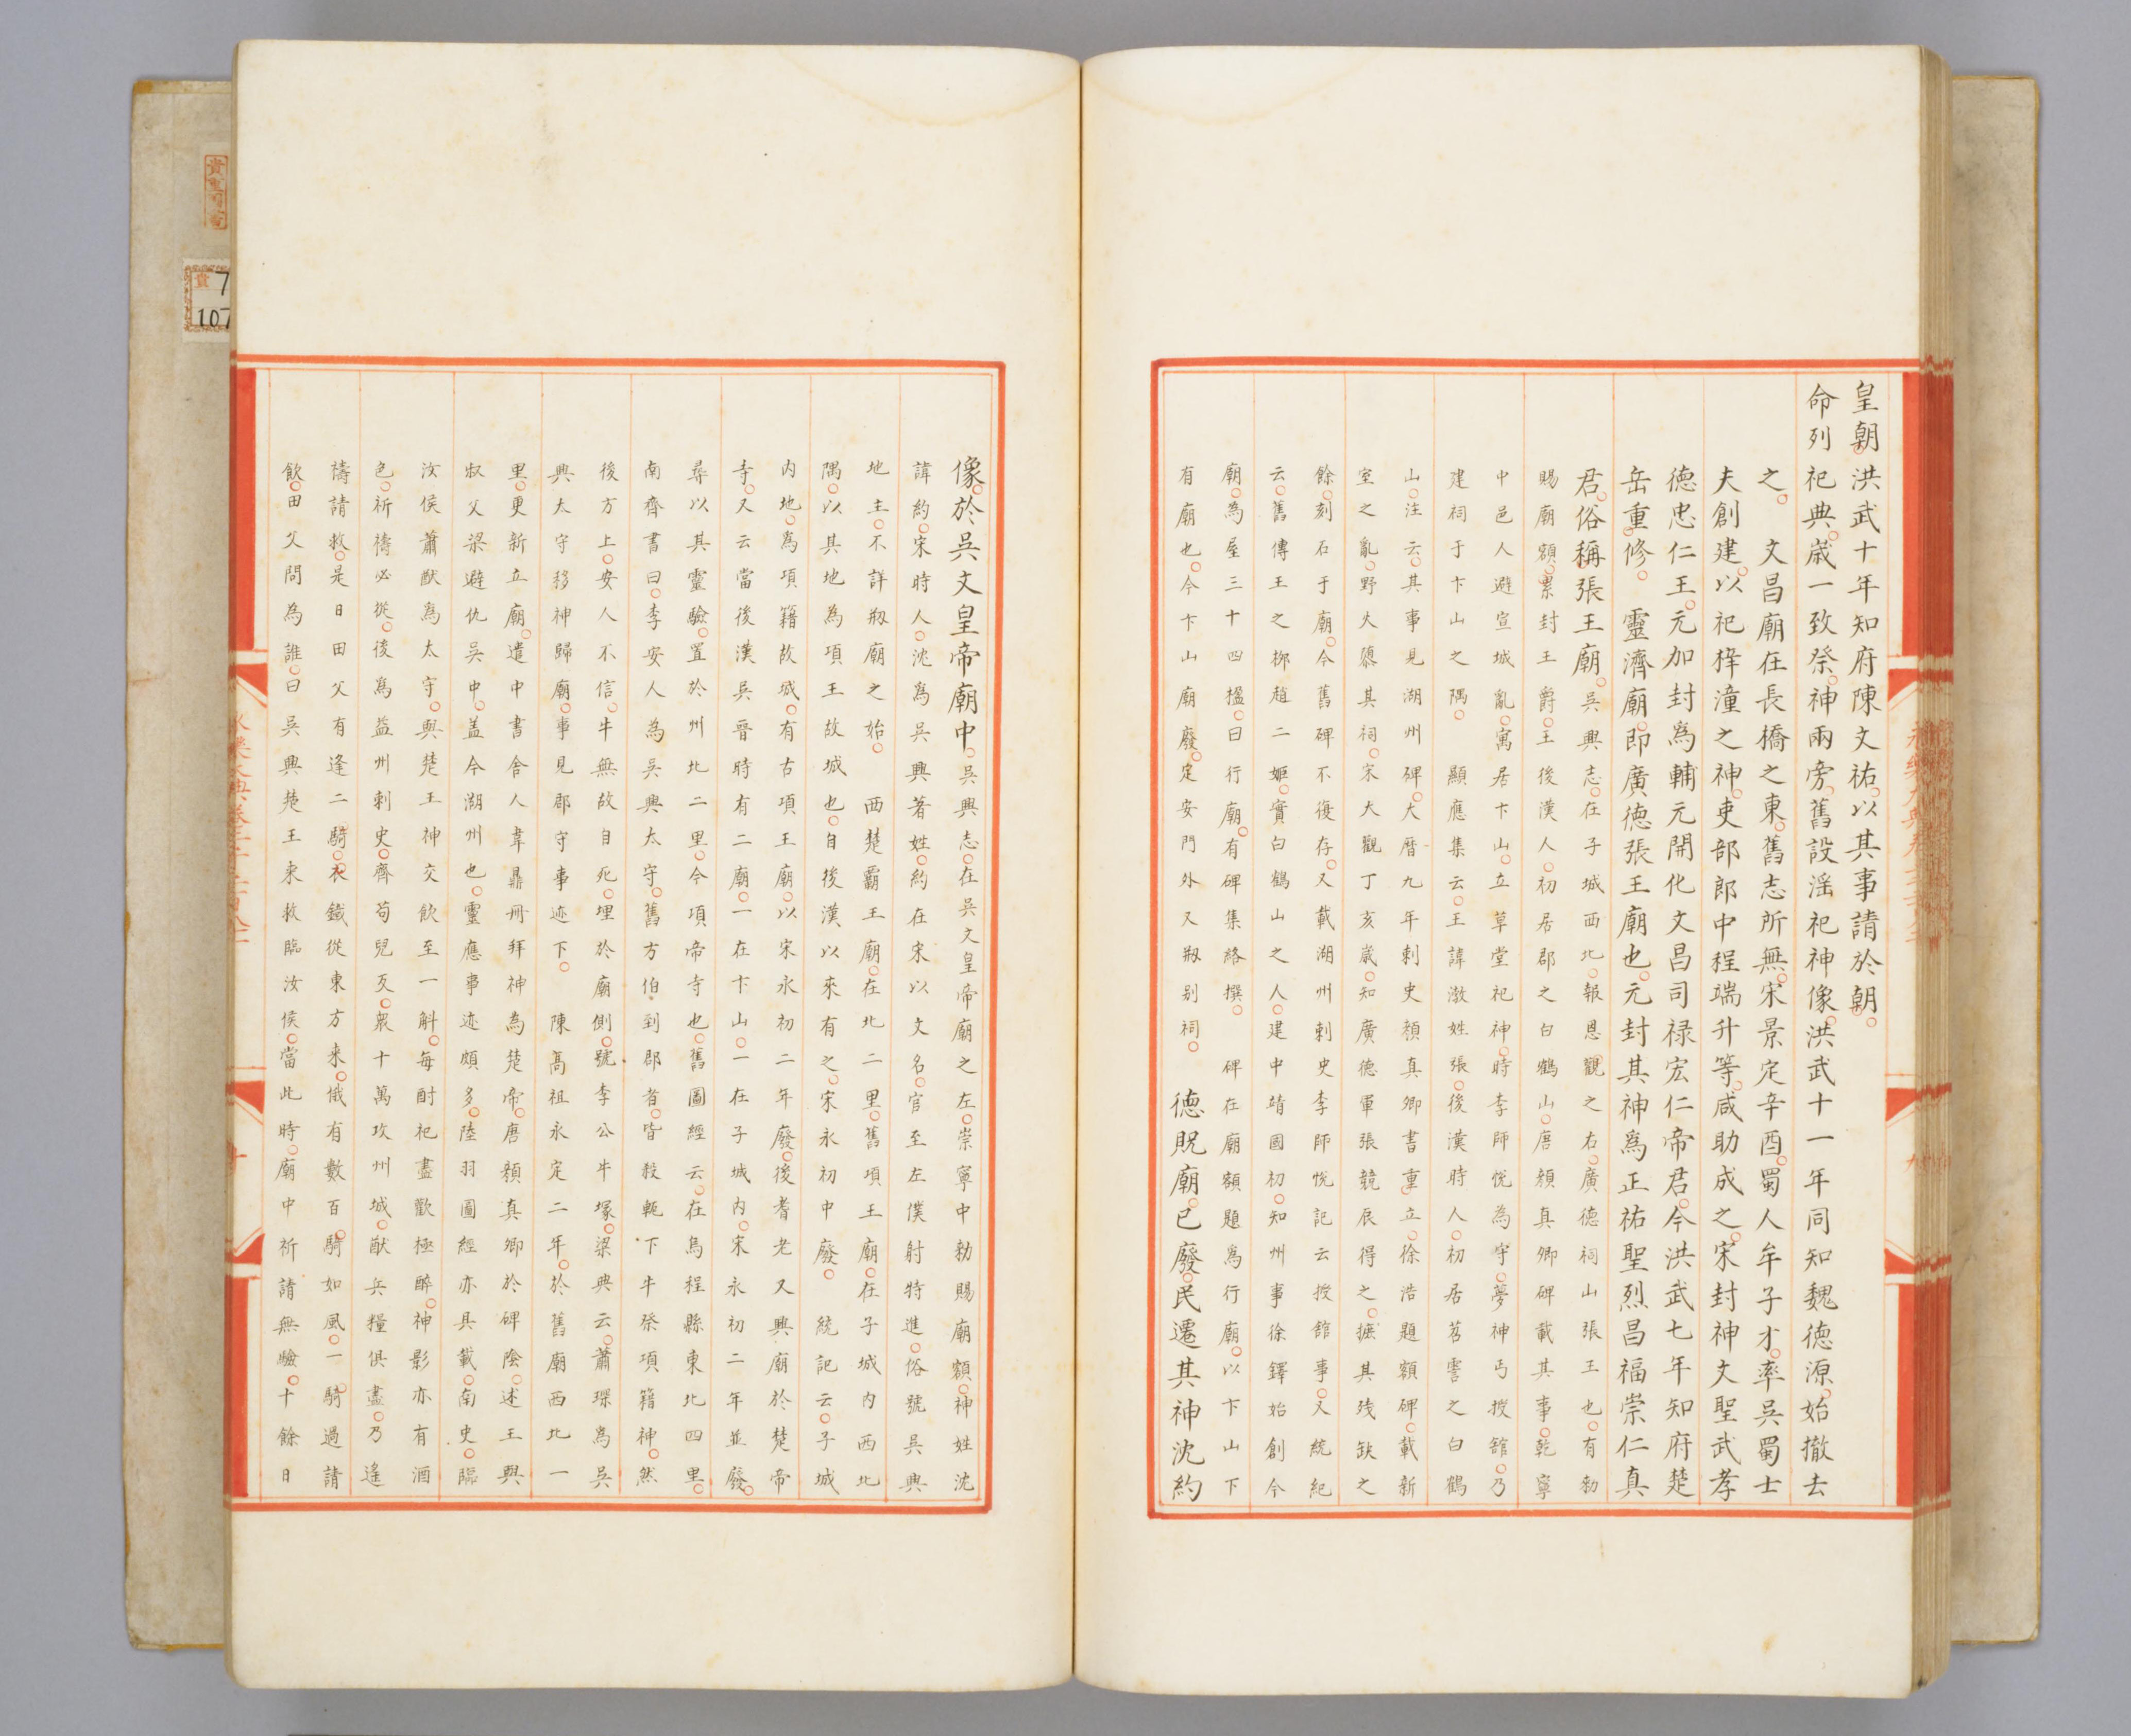 皇朝洪武十年知府陳文祐以其事請於朝
命列祀典歲一致祭神兩旁舊設滛祀神像洪武十一年同知魏德源始撤去
之 文昌廟在長橋之東舊志所無宋景定辛酉蜀人牟子才率吳蜀士
夫創建以祀梓潼之神吏部郎中程端升等咸助成之宋封神文聖武孝
德忠仁王元加封爲輔元開化文昌司禄宏仁帝君今洪武七年知府楚
岳重修 靈濟廟即廣德張王廟也元封其神爲正祐聖烈昌福崇仁真
君俗稱張王廟吳興志在子城西北報恩觀之右廣德祠山張王也有勑
賜廟額累封王爵王後漢人初居郡之白鶴山唐顏真卿碑載其事乾寧
中邑人避宣城亂寓居卞山立草堂祀神時李師悅為守夢神丐授舘乃
建祠于卞山之隅 顯應集云王諱渤姓張後漢時人初居苕霅之白鶴
山注云其事見湖州碑大曆九年刺史顏真卿書重立徐浩題額碑載新
室之亂野火隳其祠宋大觀丁亥歲知廣德軍張兢辰得之摭其殘缺之
餘刻石于廟今舊碑不復存又載湖州刺史李師悅記云授舘事又統紀
云舊傳王之柳趙二姬實白鶴山之人建中靖國初知州事徐鐸始創今
廟為屋三十四楹曰行廟有碑集絡撰 碑在廟額題爲行廟以卞山下
有廟也今卞山廟廢定安門外又剏别祠 德貺廟已廢民遷其神沈約
像於吳文皇帝廟中吳興志在吳文皇帝廟之左崇寧中勑賜廟額神姓沈
諱約宋時人沈爲吳興著姓約在宋以文名官至左僕射特進俗號吳興
地主不詳剏廟之始 西楚霸王廟在北二里舊項王廟在子城内西北
隅以其地為項王故城也自後漢以來有之宋永初中廢 統記云子城
内地爲項籍故城有古項王廟以宋永初二年廢後耆老又興廟於楚帝
寺又云當後漢吳晉時有二廟一在卞山一在子城内宋永初二年並廢
尋以其靈驗置於州北二里今項帝寺也舊圖經云在烏程縣東北四里
南齊書曰李安人為吳興太守舊方伯到郡者皆殺軛下牛祭項籍神然
後方上安人不信牛無故自死埋於廟側號李公牛塚梁典云蕭琛爲吳
興太守移神歸廟事見郡守事迹下 陳髙祖永定二年於舊廟西北一
里更新立廟遣中書舍人韋鼎册拜神為楚帝唐顏真卿於碑陰述王與
叔父梁避仇吳中盖今湖州也靈應事迹頗多陸羽圖經亦具載南史臨
汝侯蕭猷爲太守與楚王神交飲至一斛每酹祀盡歡極醉神影亦有酒
色祈禱必從後爲益州刺史齊苟兒反衆十萬攻州城猷兵糧俱盡乃遙
禱請救是日田父有逢二騎衣鐵從東方来俄有數百騎如風一騎過請
飲田父問為誰曰吳興楚王来救臨汝侯當此時廟中祈請無驗十餘日